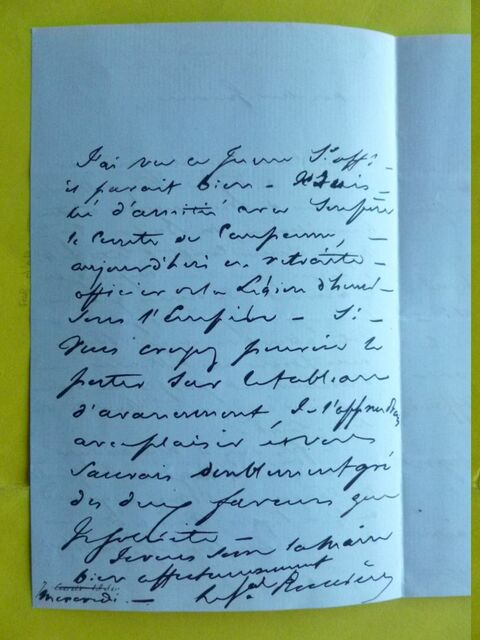 J'ai vu ce jeune S. off.
il parait bien - Je suis
lié d'amitié avec son père
le Comte de Campeau,
aujourd'hui en retraite -
officier de la Légion d'hon
sous l'Empire - Si -
Vous croyez pouvoir le
porter sur le tableau
d'avancement Je l'apprendrai
avec plaisir et vous
saurais doublement gré
des deux faveurs que
Je sollicite -
Je vous serre la main
bien affectueusement
mercredi. - Le gal